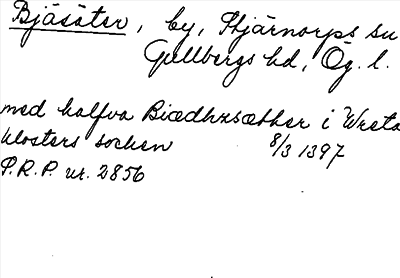 Bjäsäter, by, Stjärnorps sn
Gullbergs hd, Ög. l.
med halfva Biædhxsætther i Wreta
klosters sochen 8/3 1397
P.R.P. nr. 2856